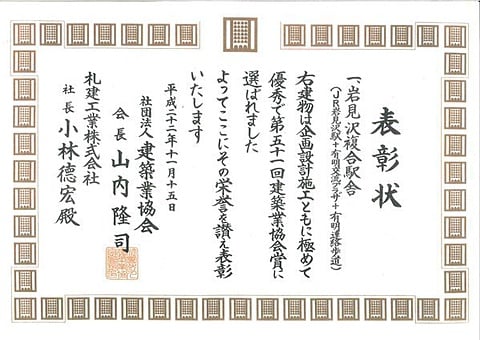 表彰状
一、岩見沢複合駅舎
(JR岩見沢駅+有明交流プラザ+有明連絡歩道)
右建物は企画設計施工ともに極めて
優秀で第五十一回建築業協会賞に
選ばれました
よってここにその栄誉を讃え表彰
いたします
平成二十二年十一月十五日
社団法人 建築業協会
会長 山内隆司
札建工業株式会社
社長 小林徳宏殿